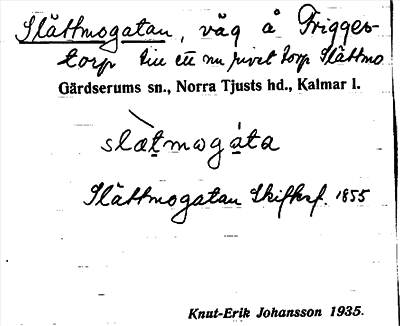 Slättmogatan, väg å Frigges-
torp till ett nu rivet torp Slättmo
Gärdserums sn., Norra Tjusts hd., Kalmar l.
slætmωgáta
Slättmogatan Skifksf. 1855
Knut-Erik Johansson 1935.